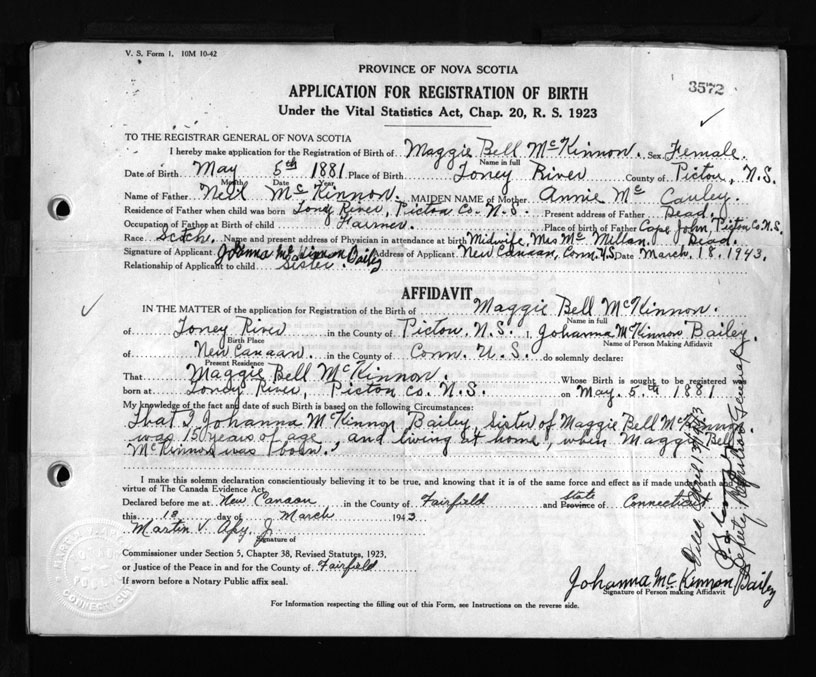 V. S. Form 1. 10M 10-42
PROVINCE OF NOVA SCOTIA
3572
APPLICATION FOR REGISTRATION OF BIRTH
Under the Vital Statistics Act, Chap. 20, R. S. 1923
TO THE REGISTRAR GENERAL OF NOVA SCOTIA
I hereby make application for the Registration of Birth of Maggie Bell McKinnon. Sex Female.
Name in full
Date of Birth May 5th 1881 Place of Birth Toney River County of Pictou, N.S.
Month Date Year
Name of Father Neil McKinnon. MAIDEN NAME of Mother Annie McCauley.
Residence of Father when child was born Toney River, Pictou Co. N.S. Present address of Father Dead.
Occupation of Father at Birth of child Farmer. Place of birth of Father Cape John, Pictou Co N.S.
Race Scotch. Name and present address of Physician in attendance at birth Midwife, Mrs McMillan, Dead.
Signature of Applicant Johanna McKinnon Bailey Address of Applicant New Canaan, Conn. U.S. Date March 18, 1943.
Relationship of Applicant to child Sister.
AFFIDAVIT
IN THE MATTER of the application for Registration of the Birth of Maggie Bell McKinnon.
Name in full
of Toney River in the County of Pictou, N.S. I, Johanna McKinnon Bailey.
Birth Place
Name of Person Making Affidavit
of New Canaan. in the County of Conn. U.S. do solemnly declare:
Present Residence
That Maggie Bell McKinnon. Whose Birth is sought to be registered was
born at Toney River, Pictou Co. N.S. on May 5th 1881
My knowledge of the fact and date of such Birth is based on the following Circumstances:
That I, Johanna McKinnon Bailey, sister of Maggie Bell McKinnon
was 15 years of age, and living at home, when Maggie Bell
McKinnon was born.
I make this solemn declaration conscientiously believing it to be true, and knowing that it is of the same force and effect as if made under oath and
virtue of The Canada Evidence Act.
Declared before me at New Canaan in the County of Fairfield State and Province of Connecticut
this 18 day of March 1943
Martin V. Apy, Jr.
Signature of
Commissioner under Section 5, Chapter 38, Revised Statutes, 1923,
or Justice of the Peace in and for the County of Fairfield
If sworn before a Notary Public affix seal.
Johanna McKinnon Bailey
Signature of Person making Affidavit
For Information respecting the filling out of this Form, see Instructions on the reverse side.
Filed April 13/1943
Deputy Registrar General
CONNECTICUT